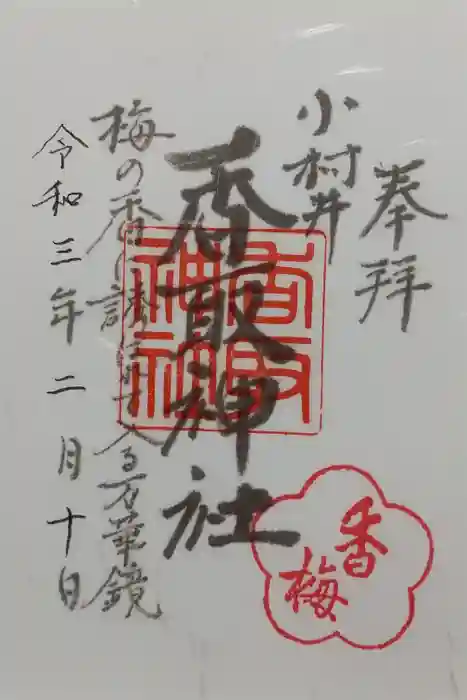 奉拝
小村井
香取神社
香取神社
香梅
梅の香に誘はれ入る万華鏡
令和三年二月十日